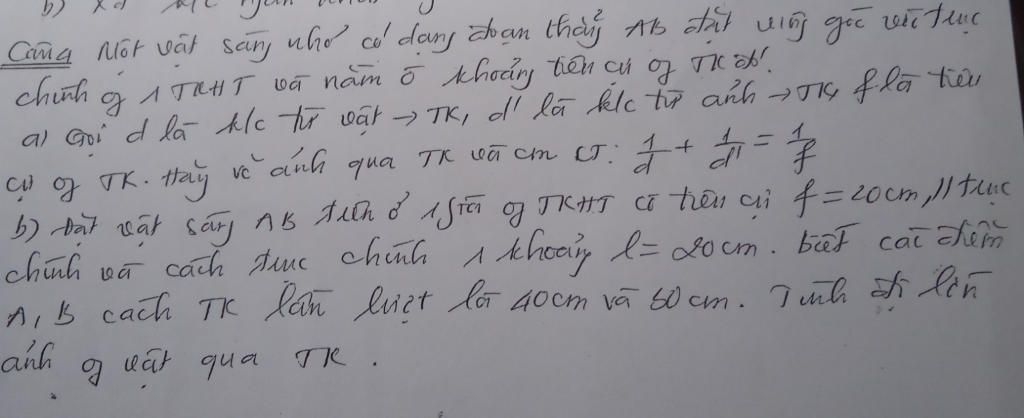 b) Xđ k/c ngắn
Câu 4 Một vật sáng nhỏ có dạng đoạn thẳng AB đặt vuông góc với trục
chính of 1 TKHT và nằm ở khoảng tiêu cự of TK đó!
a) Gọi d là k/c từ vật → TK, d' là k/c từ ảnh → TK, f là tiêu
cự of TK. Hãy vẽ ảnh qua TK và cm CT: 1/d + 1/d' = 1/f
b) Đặt vật sáng AB trên ở 1 of TKHT có tiêu cự f = 20cm, // trục
chính và cách trục chính 1 khoảng l = 20cm. biết các điểm
A, B cách TK lần lượt là 40cm và 60cm. Tính độ lớn
ảnh of vật qua TK.